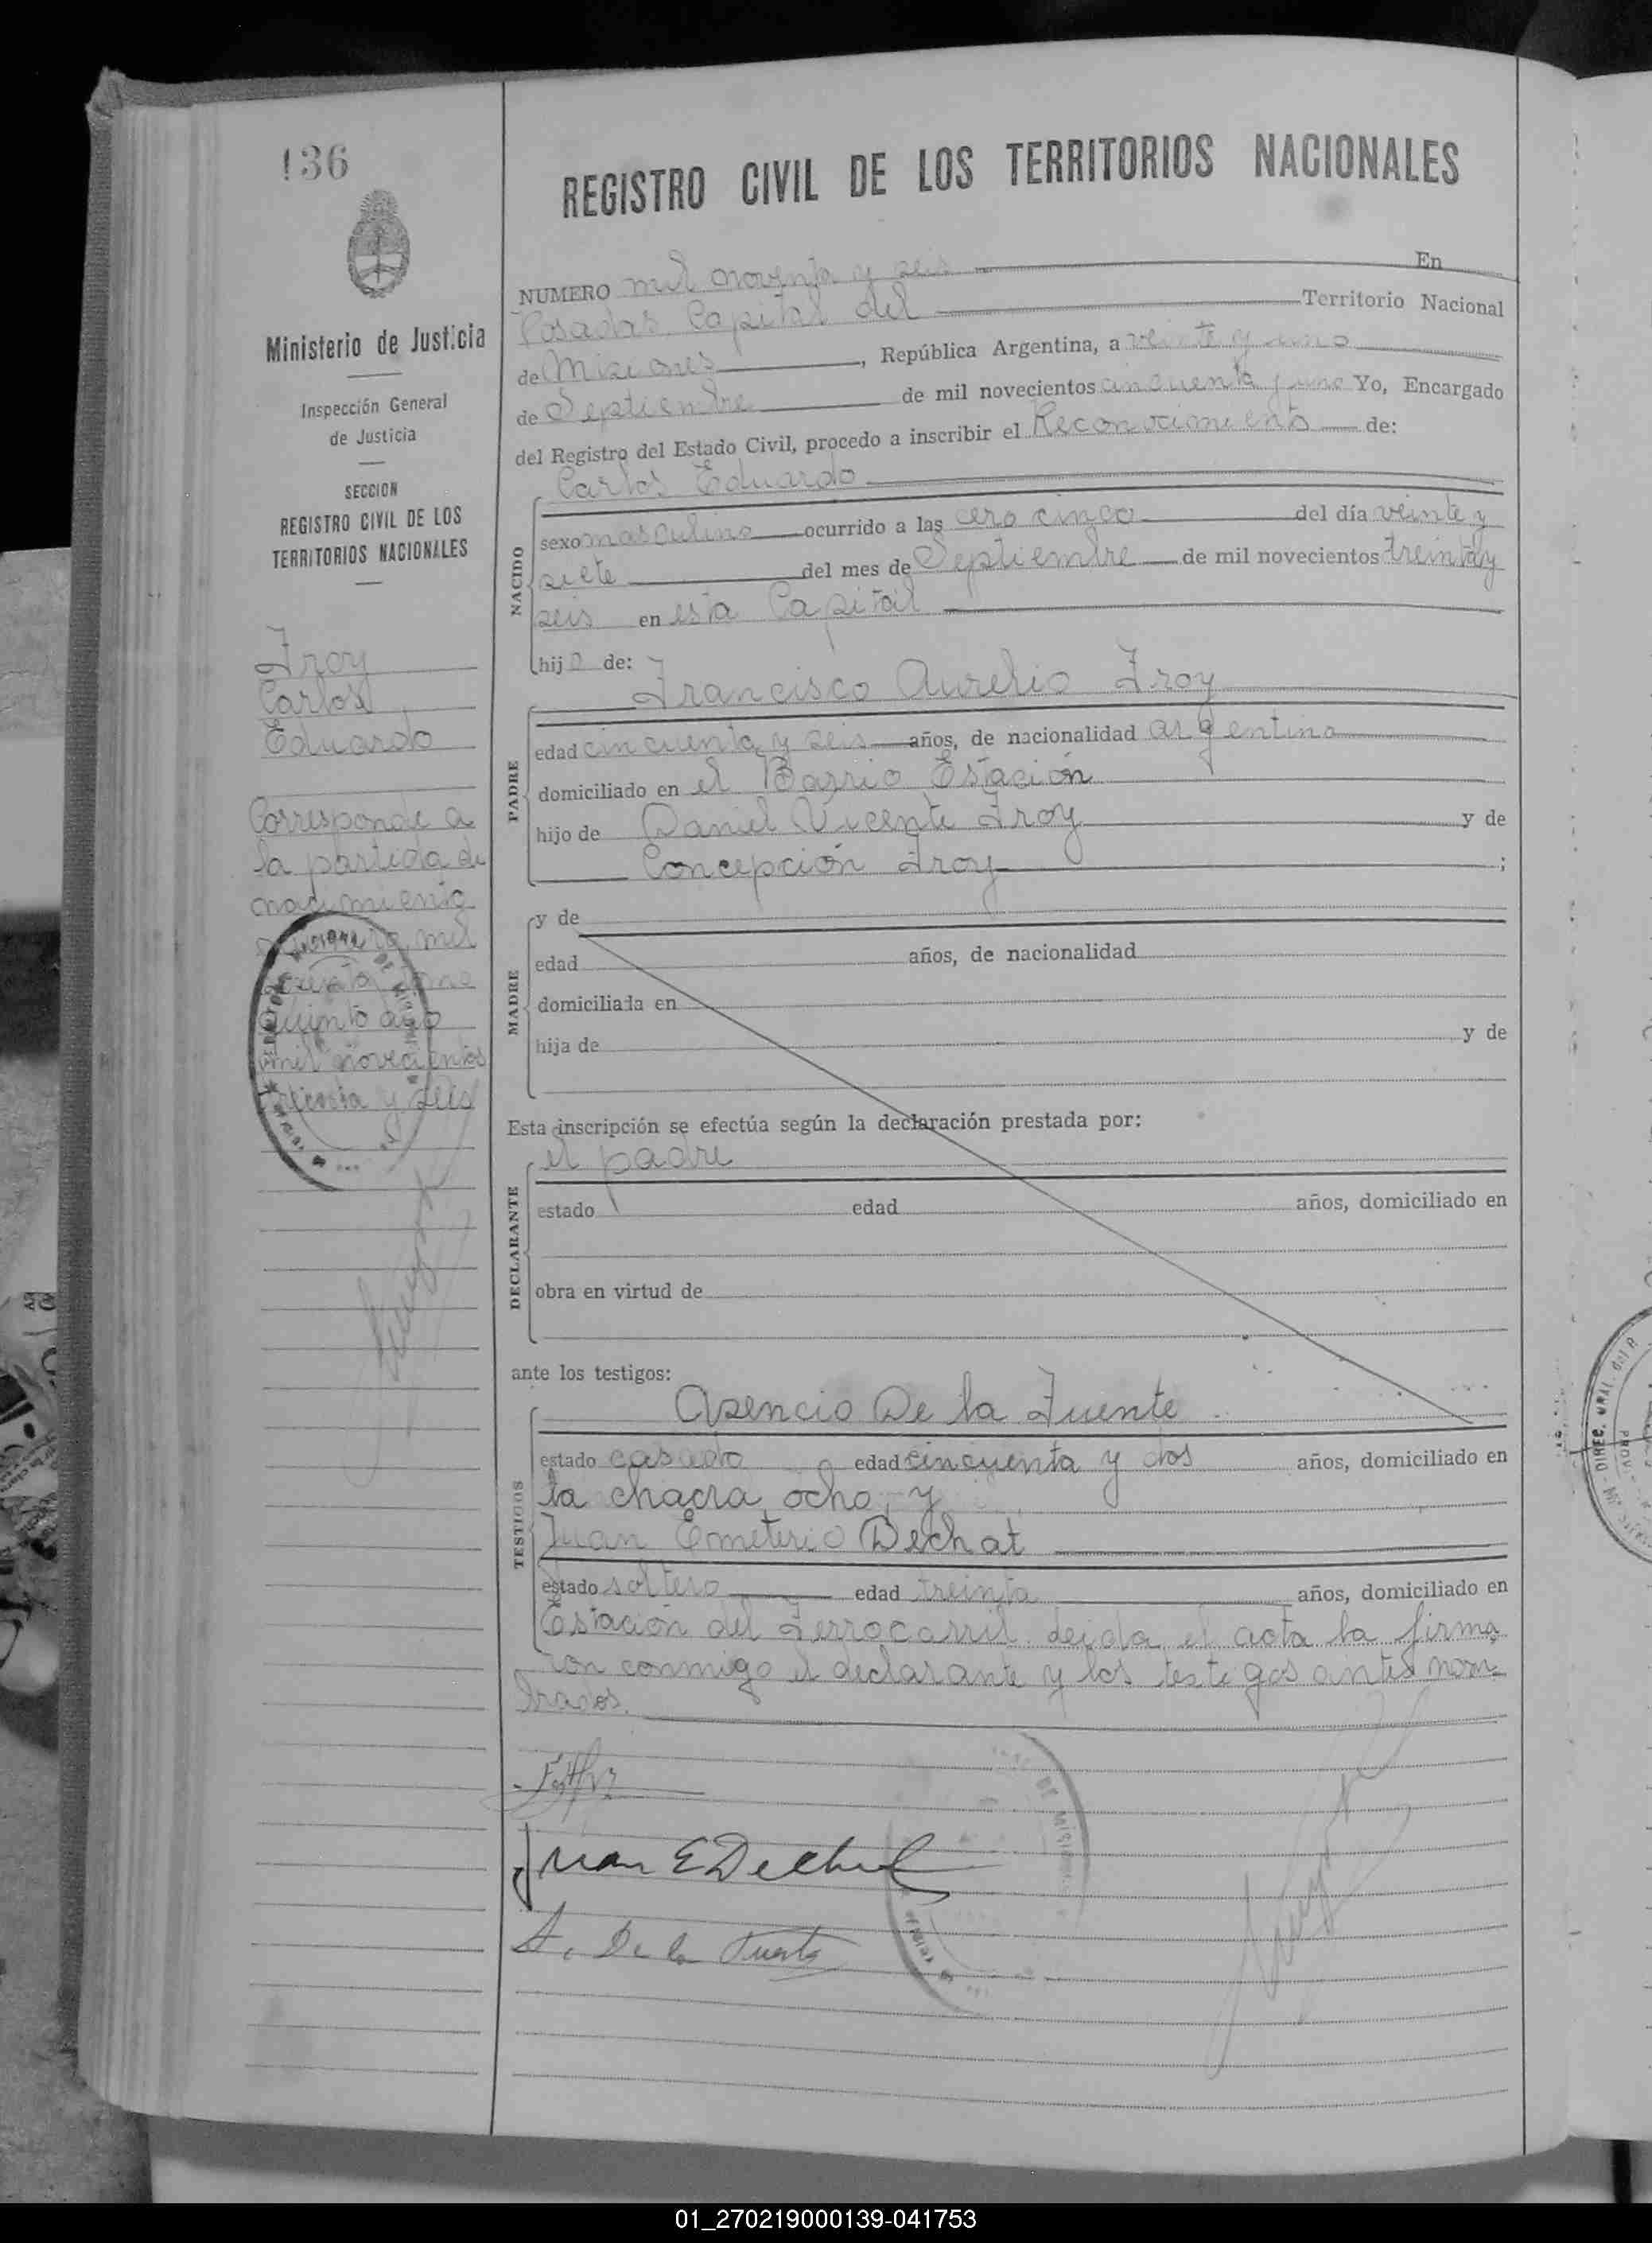 136
REGISTRO CIVIL DE LOS TERRITORIOS NACIONALES
Ministerio de Justicia
Inspección General
de Justicia
SECCION
REGISTRO CIVIL DE LOS
TERRITORIOS NACIONALES
Froy
Carlos
Eduardo
Corresponde a
la partida de
nacimiento
numero mil
quinto año
mil novecientos
treinta y seis
NUMERO mil noventa y seis En
Posadas Capital del Territorio Nacional
de Misiones, República Argentina, a veinte y uno
de Septiembre de mil novecientos cincuenta y uno Yo, Encargado
del Registro del Estado Civil, procedo a inscribir el Reconocimiento de:
Carlos Eduardo
NACIDO
sexo masculino ocurrido a las cero cinco del día veinte y
siete del mes de Septiembre de mil novecientos treinta y
seis en esta Capital
hijo de:
Francisco Aurelio Froy
PADRE
edad cincuenta y seis años, de nacionalidad argentina
domiciliado en el Barrio Estación
hijo de Daniel Vicente Froy y de
Concepción Froy ;
MADRE
y de
edad años, de nacionalidad
domiciliada en
hija de y de
Esta inscripción se efectúa según la declaración prestada por:
el padre
DECLARANTE
estado edad años, domiciliado en
obra en virtud de
ante los testigos:
Asencio De la Fuente
TESTIGOS
estado casado edad cincuenta y dos años, domiciliado en
la chacra ocho, y
Juan Emeterio Dechat
estado soltero edad treinta años, domiciliado en
Estación del Ferrocarril. Leida el acta la firma
ron conmigo el declarante y los testigos antes nom-
brados.
Juan E Dechat
A. De la Fuente
01_270219000139-041753